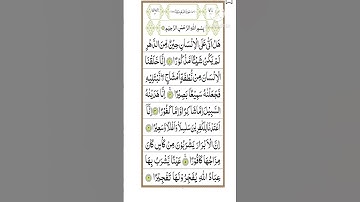 بِسْمِ اللهِ الرَّحْمٰنِ الرَّحِيْمِ
هَلْ اَتٰى عَلَى الْاِنْسَانِ حِيْنٌ مِّنَ الدَّهْرِ
لَمْ يَكُنْ شَيْـًٔا مَّذْكُوْرًا ۝۱ اِنَّا خَلَقْنَا
الْاِنْسَانَ مِنْ نُّطْفَةٍ اَمْشَاجٍ نَّبْتَلِيْهِ
فَجَعَلْنٰهُ سَمِيْعًۢا بَصِيْرًا ۝۲ اِنَّا هَدَيْنٰهُ
السَّبِيْلَ اِمَّا شَاكِرًا وَّاِمَّا كَفُوْرًا ۝۳ اِنَّاۤ
اَعْتَدْنَا لِلْكٰفِرِيْنَ سَلٰسِلَا۠ وَاَغْلٰلًا وَّسَعِيْرًا ۝۴
اِنَّ الْاَبْرَارَ يَشْرَبُوْنَ مِنْ كَاْسٍ كَانَ
مِزَاجُهَا كَافُوْرًا ۝۵ عَيْنًا يَّشْرَبُ بِهَا
عِبَادُ اللهِ يُفَجِّرُوْنَهَا تَفْجِيْرًا ۝۶